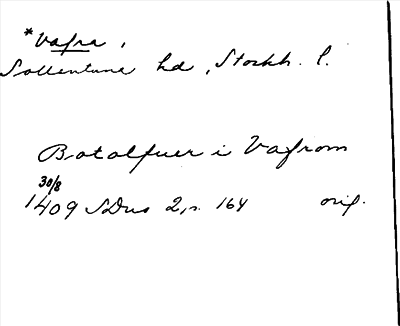 *Vafra,
Sollentuna hd, Stockh. l.
Botolfuer i Vafrom
30/8
1409 SDns 2, s. 164 orig.